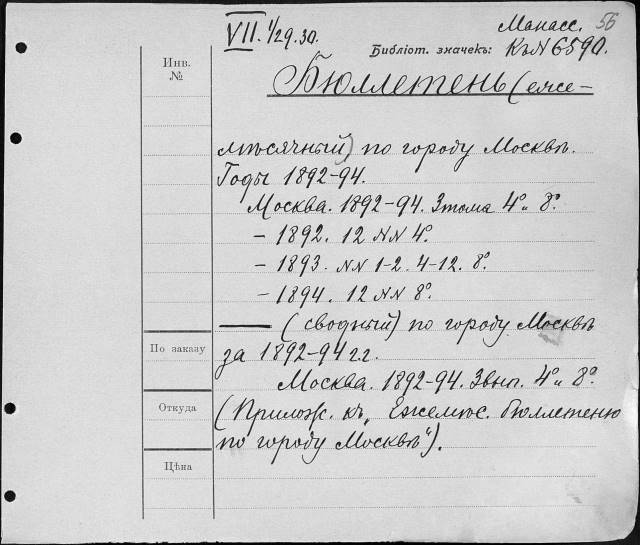 VII. 1/29.30.
Манасс. 56
Библіот. значекъ: Къ N 6590.
Инв.
№
Бюллетень (еже-
мѣсячный) по городу Москвѣ.
Годы 1892-94.
Москва. 1892-94. 3 тома 4° и 8°.
- 1892. 12 NN 4°.
- 1893. NN 1-2. 4-12. 8°.
- 1894. 12 NN 8°.
— (сводный) по городу Москвѣ
По заказу
за 1892-94 г.г.
Москва. 1892-94. 3 вып. 4° и 8°.
Откуда
(Прилож. къ „Ежемѣс. бюллетеню
по городу Москвѣ“).
Цѣна